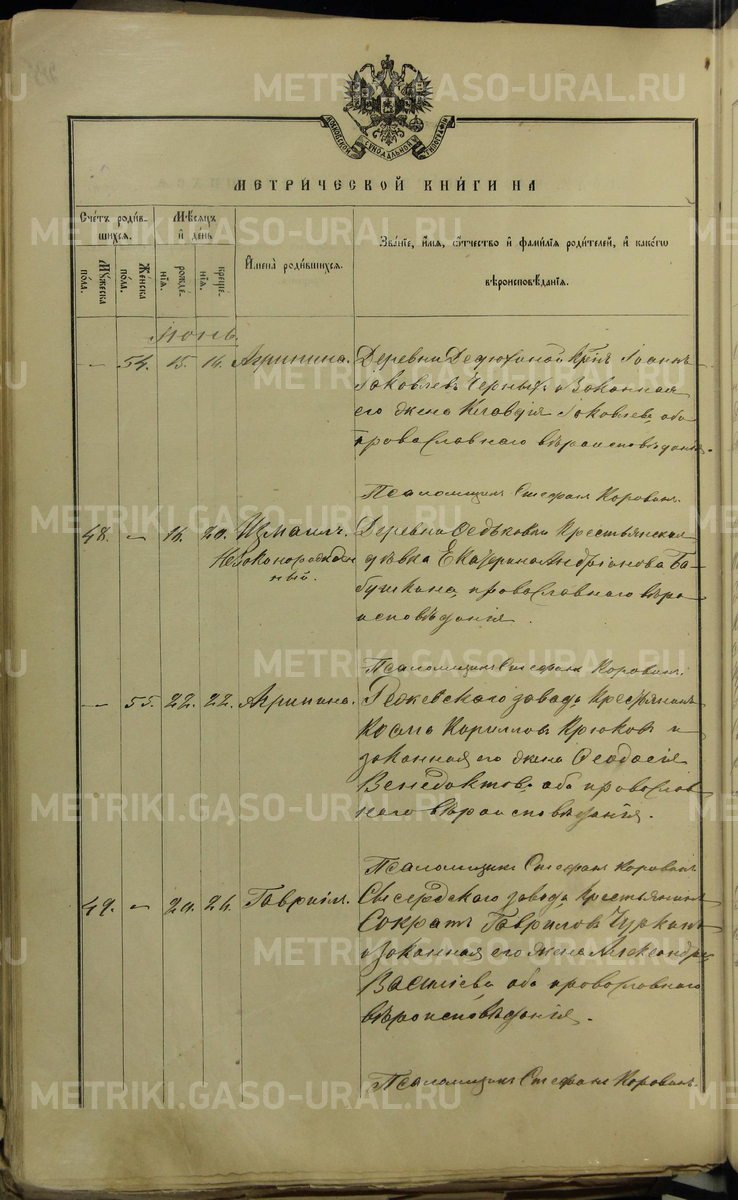 МОСКОВСКОЙ СѴНОДАЛЬНОЙ ТИПОГРАФІИ
МЕТРИЧЕСКОЙ КНИГИ НА
Счетъ родив-
шихся.
Мѣсяцъ
и день
Имена родившихся.
Званіе, имя, отчество и фамилія родителей, и какого
вѣроисповѣданія.
Мужеска
пола.
Женска
пола.
рожде-
нія.
креще-
нія.
Іюнь.
— 54. 15. 16. Агрипина. Деревни Дедюхиной Кр̃нъ Іоаннъ
Іаковлевъ Черныхъ и законная
его жена Клавдія Іаковлева, оба
православнаго вѣроисповѣданія.
Псаломщикъ Стефанъ Коровинъ.
48. — 16. 20. Измаилъ.
Незаконорожден
ный.
Деревни Ѳедьковки Крестьянская
дѣвка Екатерина Андріанова Ба-
бушкина, православнаго вѣро
исповѣданія.
Псаломщикъ Стефанъ Коровинъ.
— 55. 22. 22. Агрипина. Режевскаго завода Крестьянинъ
Косма Кириллов Крюковъ и
законная его жена Ѳеодосія
Венедиктова, оба православ
наго вѣроисповѣданія.
Псаломщикъ Стефанъ Коровинъ
49. — 24. 26. Гавріилъ. Сысердскаго завода крестьянинъ
Сократъ Гавриловъ
и законная его жена Александра
Василіева оба православнаго
вѣроисповѣданія.
Псаломщикъ Стефанъ Коровинъ.
METRIKI.GASO-URAL.RU